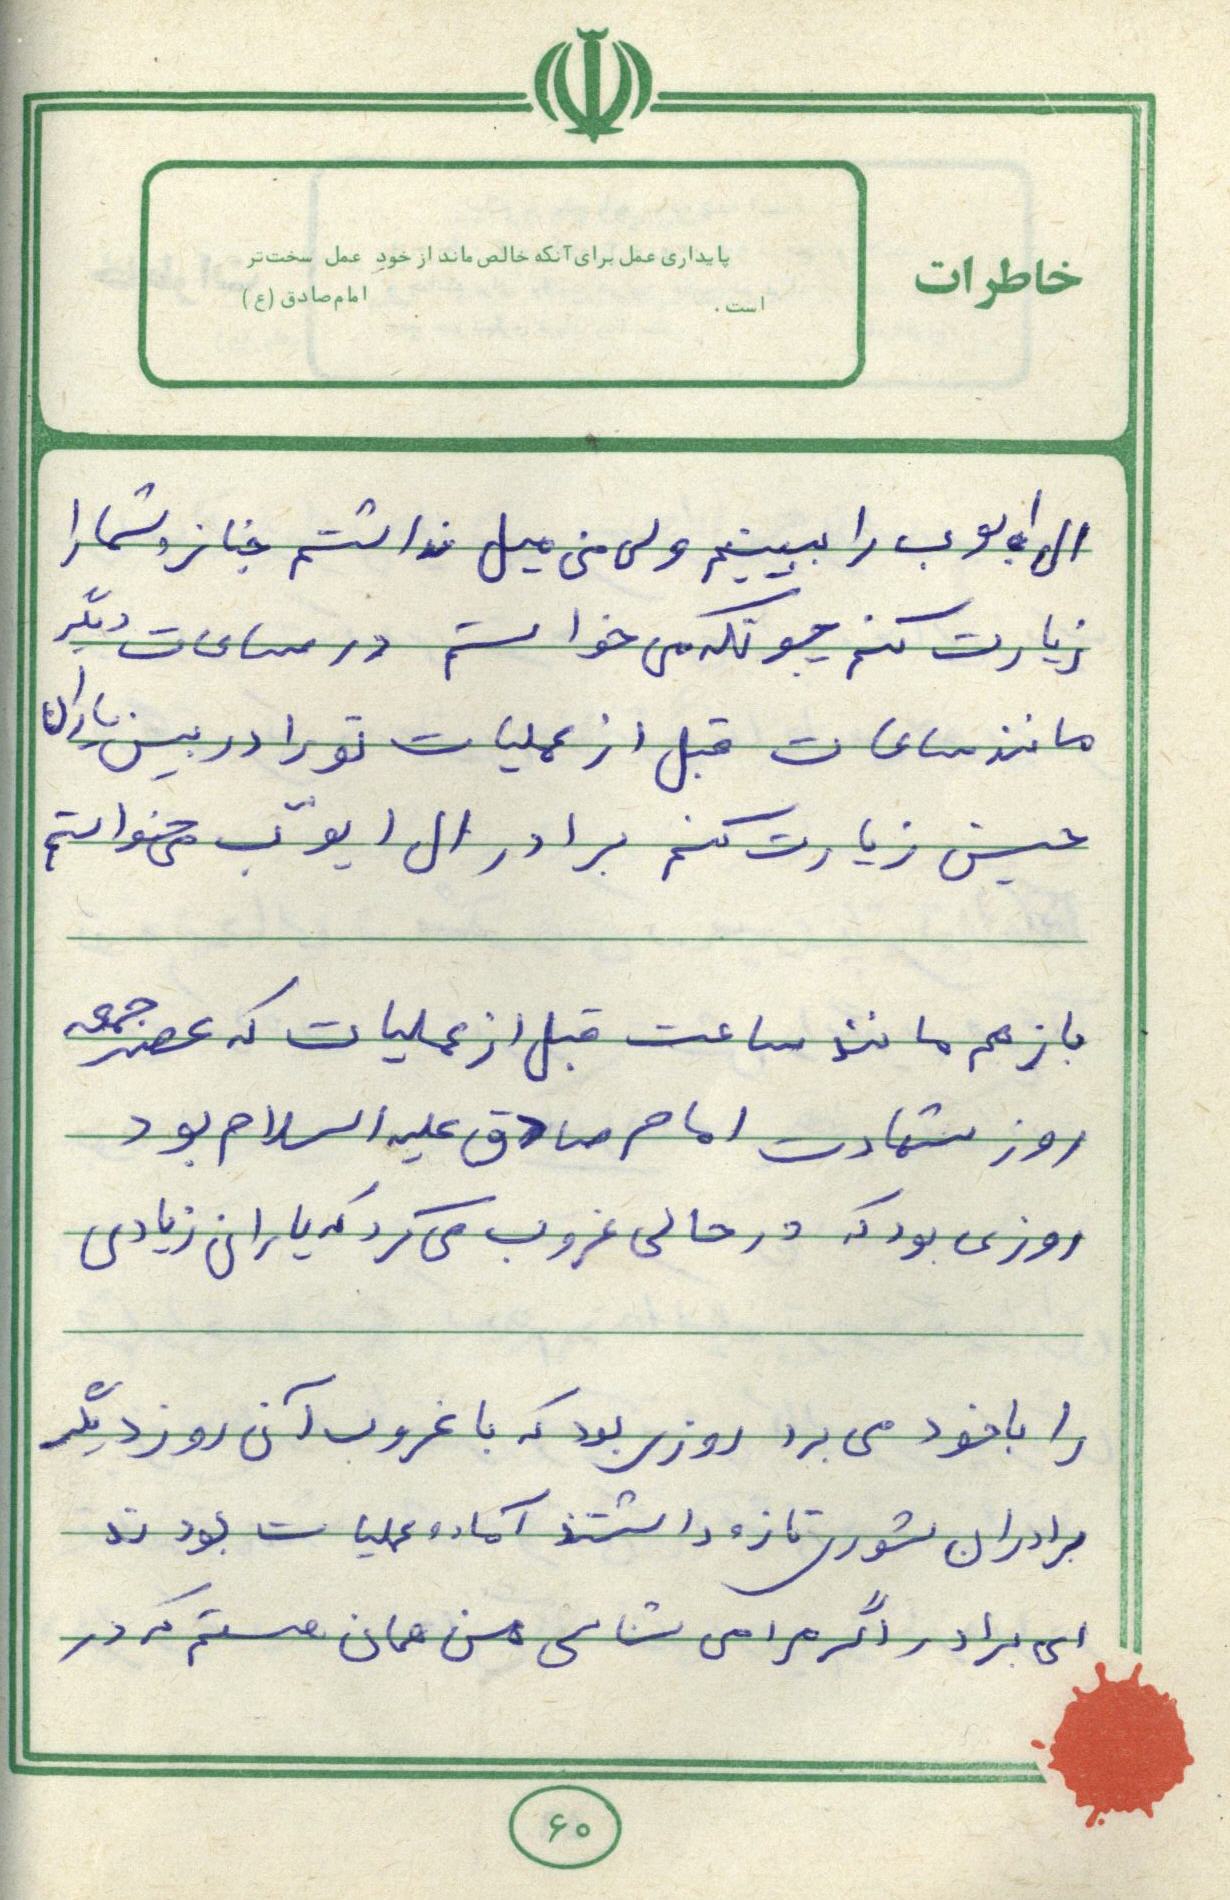 خاطرات
پایداری عمل برای آنکه خالص ماند از خود عمل سخت‌تر
است . امام صادق (ع)
ال ایوب را ببینیم ولی من میل نداشتم جنازه شما را
زیارت کنم چونکه می خواستم در ساعات دیگر
مانند ساعات قبل از عملیات تو را در بین یاران
حسین زیارت کنم برادر ال ایوب میخواستم
باز هم مانند ساعت قبل از عملیات که عصر جمعه
روز شهادت امام صادق علیه السلام بود
روزی بود که در حالی غروب می کرد که یاران زیادی
را با خود می برد روزی بود که با غروب آن روز دیگر
برادران شوری تازه داشتند آماده عملیات بودند
ای برادر اگر مرا می شناسی من همان هستم که در
۶۰